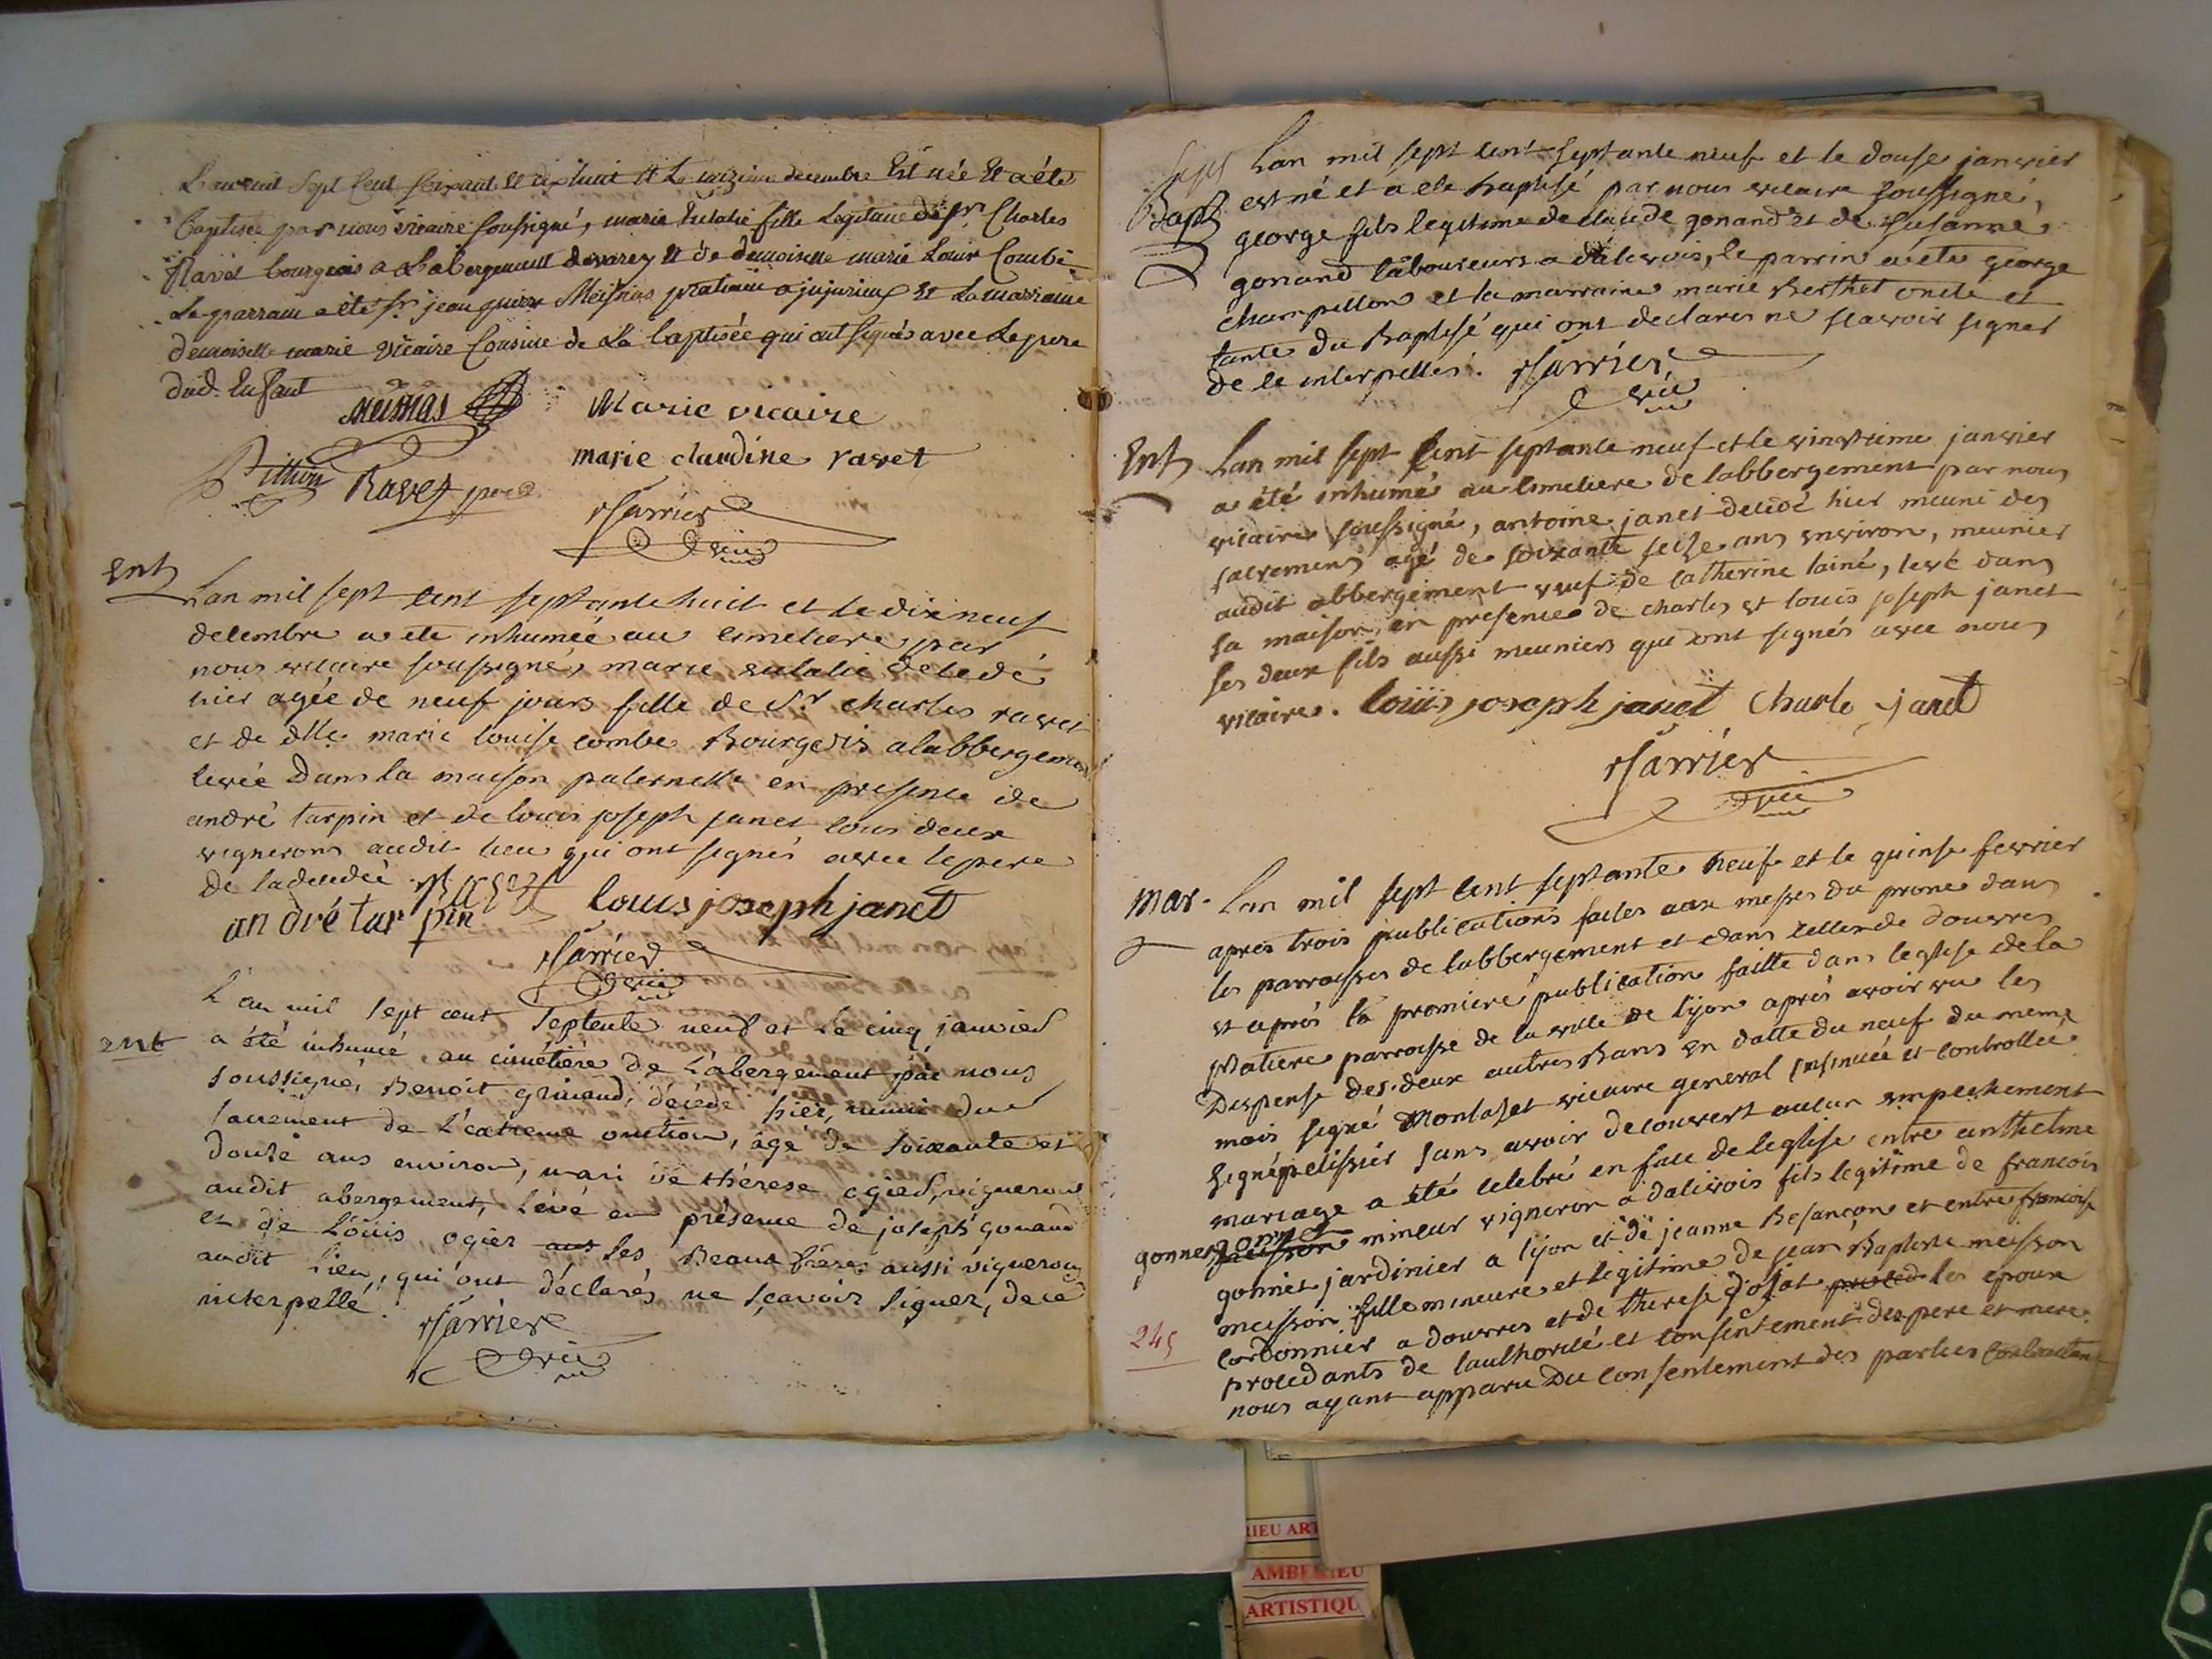 L'an mil Sept Cent Soixante et dix huit et Le onzieme decembre Est née Et a été
Baptisée par nous vicaire soussigné, marie Eulalie fille Legitime de Sr. Charles
Ravet bourgeois a Labergement devarey et de demoiselle marie Louise Combe
Le parrain a été Sr. jean Meisnias praticien a jujurieux et La marraine
demoiselle marie vicaire Cousine de La baptisée qui ont signés avec Le pere
dud. Enfant
Meisnias
Marie vicaire
marie claudine ravet
Ravet pere
Sarrier
vic
Ent
Lan mil sept cent septante huit et le dix neuf
decembre a ete inhumée au cimetiere par
nous vicaire soussigné, marie eulalie decedé
hier agée de neuf jours fille de Sr charles ravet
et de dlle marie louise combe Bourgeois alabbergement
levée Dans la maison paternelle en presence de
andré tarpin et de louis joseph janet tous deux
vignerons audit lieu qui ont signés avec le pere
de ladecedée. Ravet louis joseph janet
andré tarpin
Sarrier
vic
L'an mil sept cent septente neuf et Le cinq janvier
ent a été inhumé au cimétiére de L'abergement par nous
soussigné, Benoit grinand, décédé hier, muni du
sacrement de L'extreme onction, âgé de soixante et
douze ans environ, mari de thérese ogier, vigneron
audit abergement, Lévé en présence de joseph gonand
et de Loüis ogier ses Beaux fréres aussi vignerons
audit Lieu, qui ont déclarés ne sçavoir signer, de ce
interpellé.
Sarrier
vic
Lan mil sept cent septante neuf et le douse janvier
Bapt est né et a ete baptisé par nous vicaire soussigné,
george fils legitime de claude gonand et de susanne
gonand laboureurs a dalivois, le parrin a été george
champellon et la marraine marie Berthet oncle et
tante du Baptisé qui ont declares ne scavoir signer
de ce interpelles. Sarrier
vic
Ent Lan mil sept Cent septante neuf et le vingtieme janvier
a été inhumé au cimetiere de labbergement par nous
vicaire soussigné, antoine janet decidé hier muni des
sacremens agé de soixante seize ans environ, meunier
audit abbergement veuf de catherine lainé, levé dans
sa maison, en presence de charles et louis joseph janet
ses deux fils aussi meuniers qui ont signés avec nous
vicaire. loüis joseph janet Charle janet
Sarrier
vic
mar. Lan mil sept cent septante neuf et le quinse fevrier
apres trois publications faites aux messes du prone dans
les parroisses de labbergement et dans celles de douvres
et aprés la premiere publication faitte dans leglise de la
platiere parroisse de la ville de lijon aprés avoir vu les
Dispense des deux autres Bans en datte du neuf du meme
mois signé Montaset vicaire general insinuée et controllée
signé pelissier sans avoir decouvert aucun empechement
mariage a été celebré en face de leglise entre anthelme
gonnet gonnet mineur vigneron a dalivois fils legitime de francois
gonnet jardinier a lijon et de jeanne Besançon et entre francoise
meisson fille mineure et legitime de jean Baptiste meisson
245 cordonnier a douvres et de therese les epoux
procedants de lauthorité et consentement des pere et mere
nous ayant apparu Du consentement des parties contractantes
AMBERIEU
ARTISTIQU